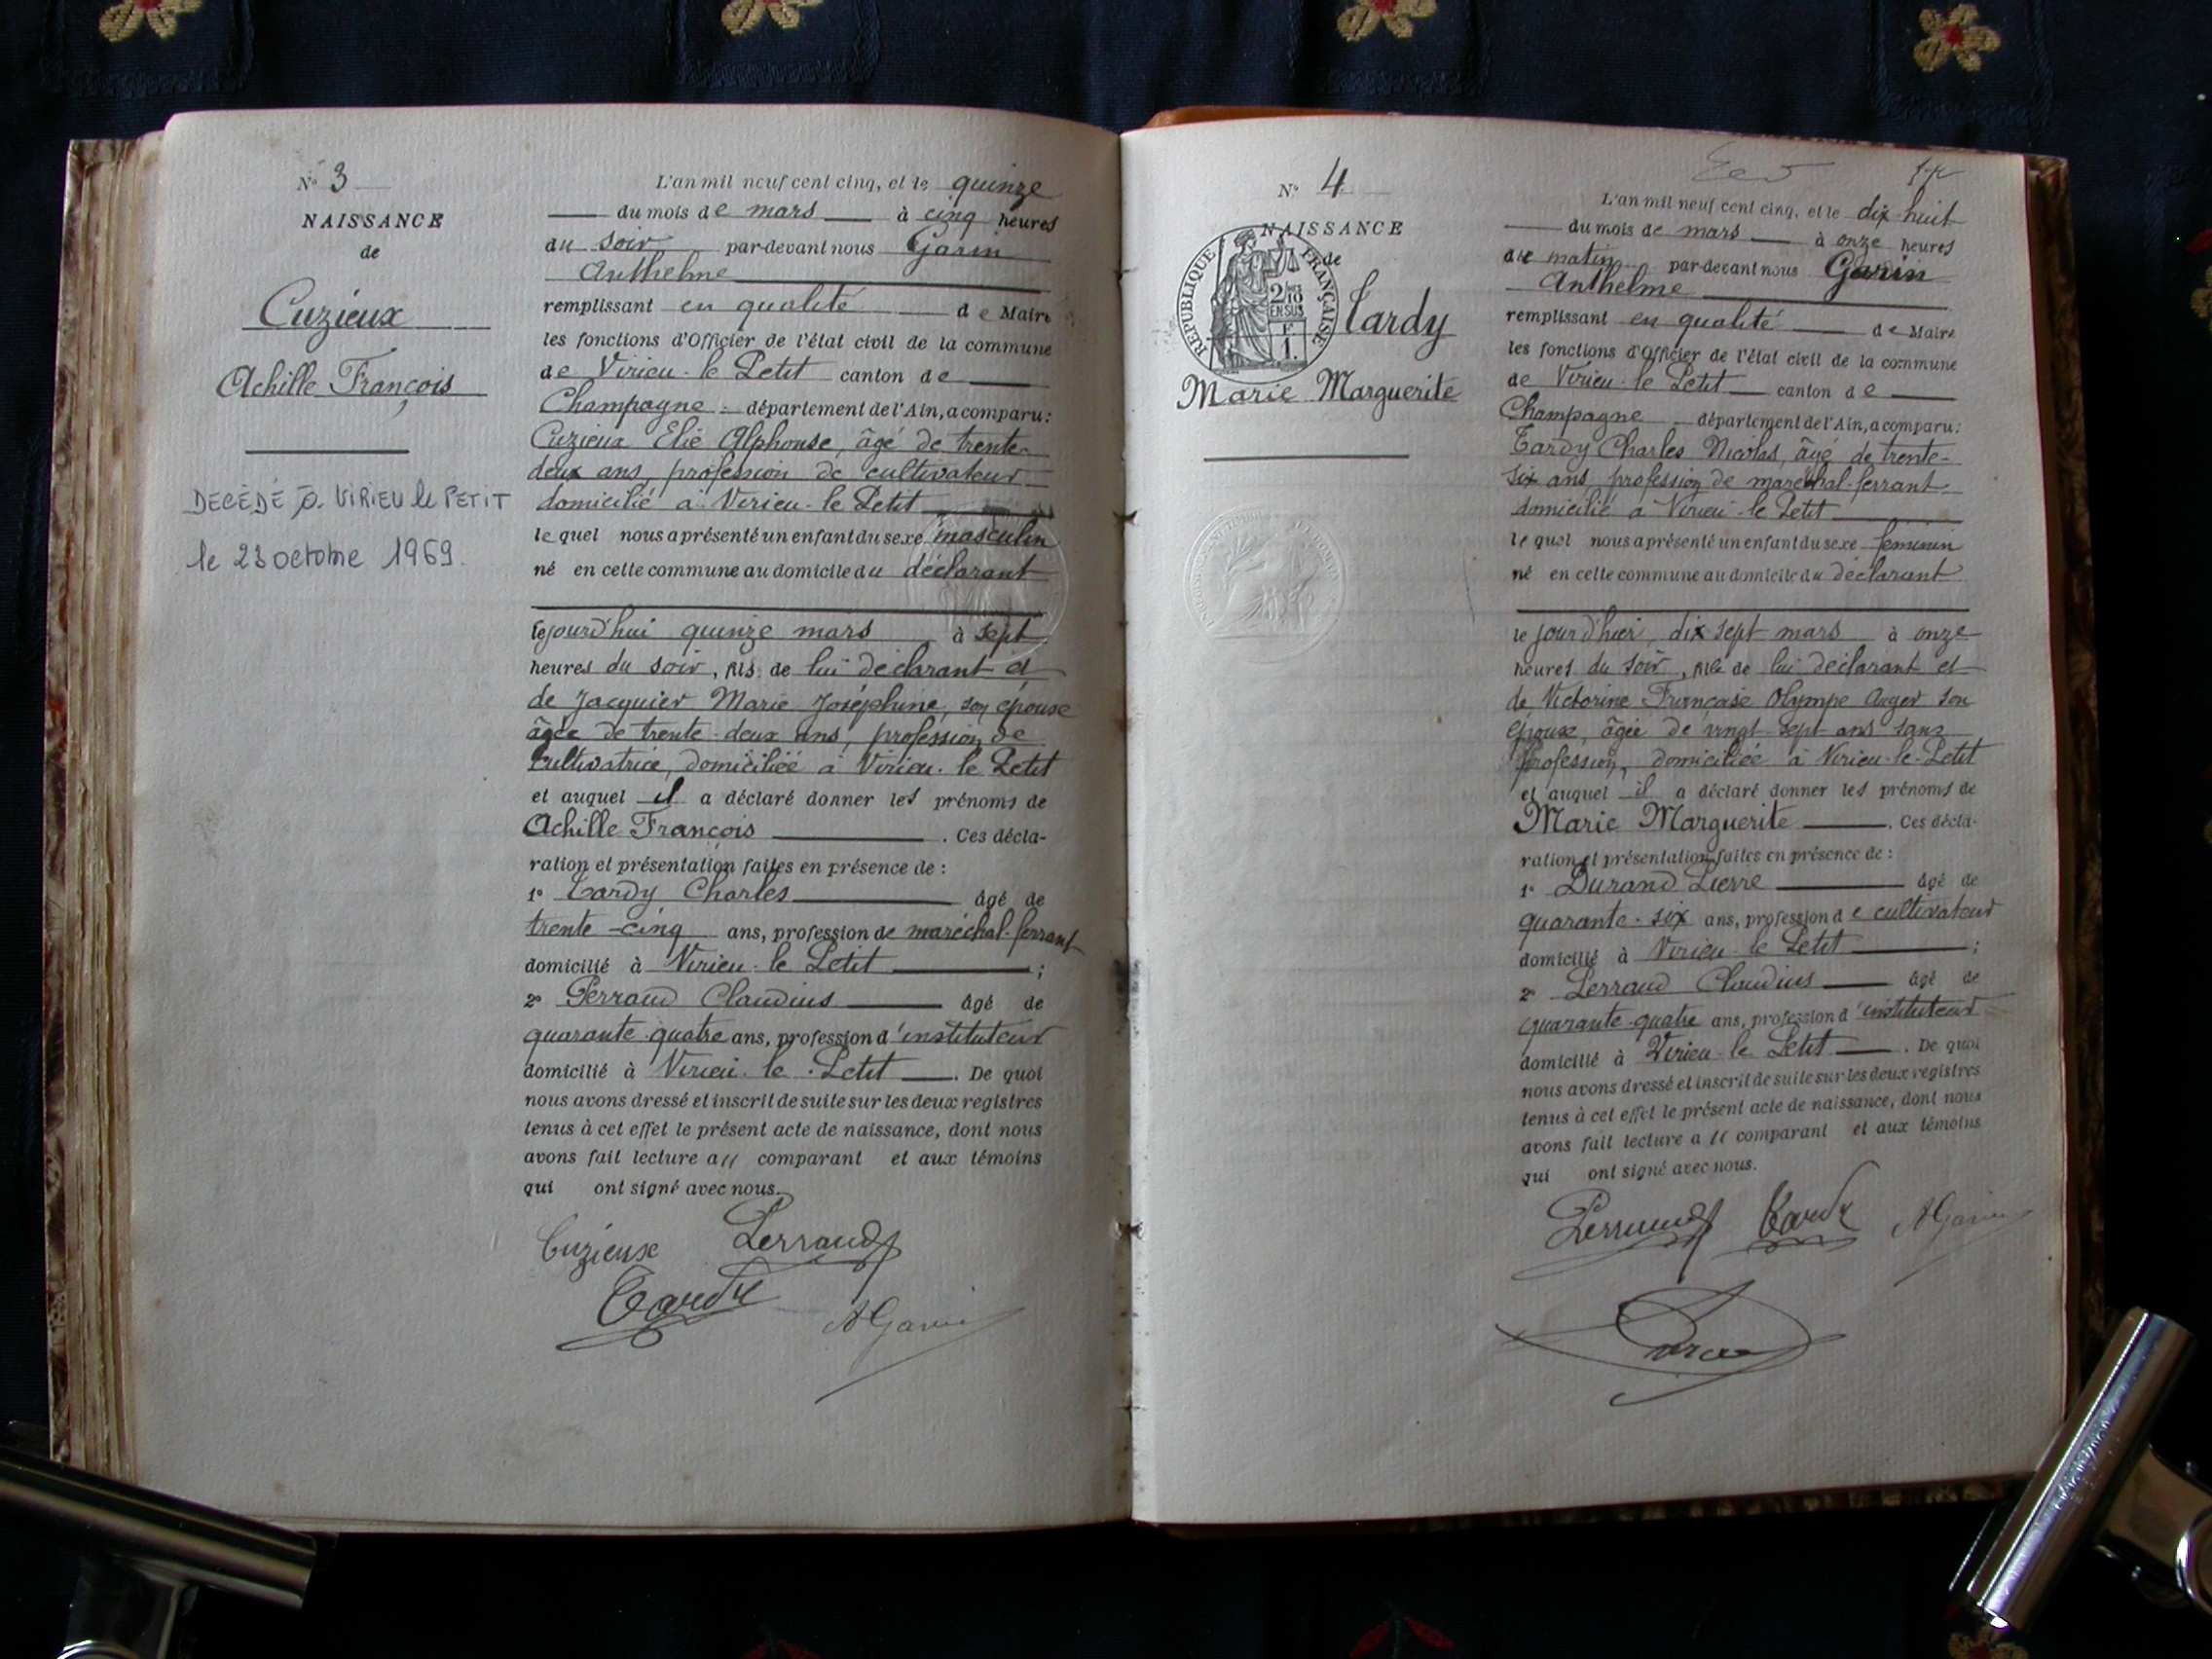 N° 3
NAISSANCE
de
Cuzieux
Achille François
DECÉDÉ à VIRIEU le PETIT
le 23 octobre 1969.
L'an mil neuf cent cinq, et le quinze
du mois de mars à cinq heures
du soir par-devant nous Garin
Anthelme
remplissant en qualité de Maire
les fonctions d'Officier de l'état civil de la commune
de Virieu-le Petit canton de
Champagne département de l'Ain, a comparu:
Cuzieux Elie Alphonse, âgé de trente-
deux ans, profession de cultivateur
domicilié à Virieu-le Petit
lequel nous a présenté un enfant du sexe masculin
né en cette commune au domicile du déclarant
le jourd'hui quinze mars à sept
heures du soir, fils de lui déclarant et
de Jacquier Marie Joséphine, son épouse
âgée de trente-deux ans, profession de
cultivatrice, domiciliée à Virieu-le Petit
et auquel il a déclaré donner les prénoms de
Achille François. Ces décla-
ration et présentation faites en présence de:
1° Tardy Charles âgé de
trente-cinq ans, profession de maréchal-ferrant
domicilié à Virieu-le Petit;
2° Perraud Claudius âgé de
quarante-quatre ans, profession d'instituteur
domicilié à Virieu-le-Petit. De quoi
nous avons dressé et inscrit de suite sur les deux registres
tenus à cet effet le présent acte de naissance, dont nous
avons fait lecture au comparant et aux témoins
qui ont signé avec nous.
Cuzieux Perraud
Tardy AGarin
N° 4
NAISSANCE
de
RÉPUBLIQUE FRANÇAISE
2/10
EN SUS
F.
1.
Tardy
Marie Marguerite
L'an mil neuf cent cinq, et le dix-huit
du mois de mars à onze heures
du matin par-devant nous Garin
Anthelme
remplissant en qualité de Maire
les fonctions d'Officier de l'état civil de la commune
de Virieu-le Petit canton de
Champagne département de l'Ain, a comparu:
Tardy Charles Nicolas, âgé de trente-
six ans, profession de maréchal-ferrant
domicilié à Virieu-le Petit
lequel nous a présenté un enfant du sexe féminin
né en cette commune au domicile du déclarant
le jour d'hier, dix sept mars à onze
heures du soir, fille de lui déclarant et
de Victorine Françoise Olympe Auger son
épouse, âgée de vingt-sept ans sans
profession, domiciliée à Virieu-le-Petit
et auquel il a déclaré donner les prénoms de
Marie Marguerite. Ces décla-
ration et présentation faites en présence de:
1° Durand Pierre âgé de
quarante-six ans, profession de cultivateur
domicilié à Virieu-le Petit;
2° Perraud Claudius âgé de
quarante-quatre ans, profession d'instituteur
domicilié à Virieu-le Petit. De quoi
nous avons dressé et inscrit de suite sur les deux registres
tenus à cet effet le présent acte de naissance, dont nous
avons fait lecture au comparant et aux témoins
qui ont signé avec nous.
Perraud Tardy AGarin